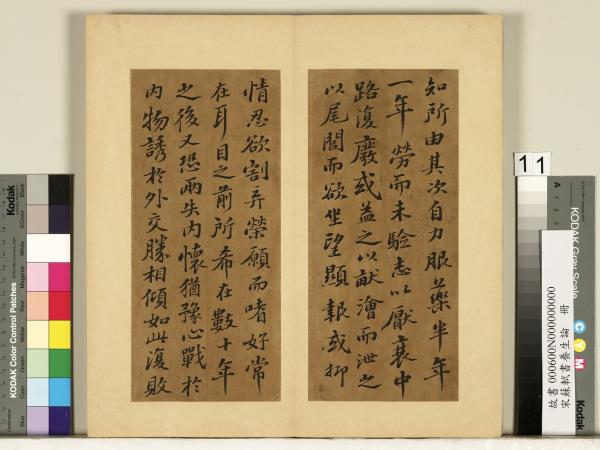 知所由其次自力服藥半年
一年勞而未驗志以厭衰中
路復廢或益之以畎澮而泄之
以尾閭而欲坐望顯報或抑
情忍欲割弃榮願而嗜好常
在耳目之前所希在數十年
之後又恐兩失內懷猶豫心戰於
內物誘於外交賒相傾如此復敗
11
故書 000600N000000000
宋蘇軾書養生論 冊
KODAK Gray Scale
C Y M
Kodak
A 1 2 3
Kodak
KODAK Color Control Patches
Blue
Cyan
Green
Yellow
Red
Magenta
White
3/Color
Black